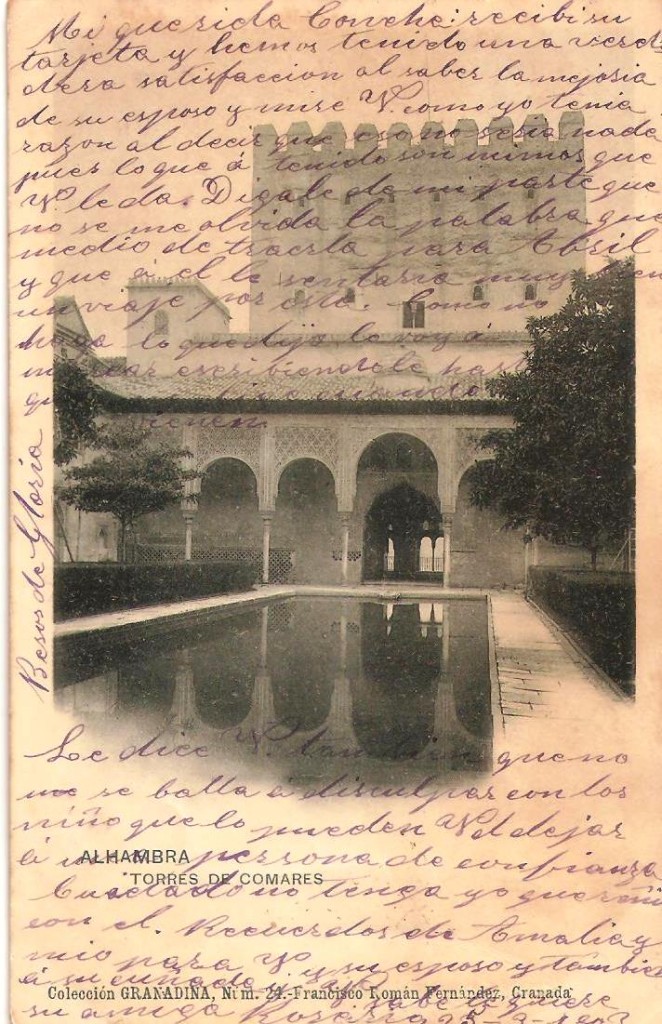 Mi querida Conche: recibi su
tarjeta y hemos tenido una verda
dera satisfaccion al saber la mejoria
de su esposo y mire V. como yo tenia
razon al decir que eso no seria nada
pues lo que á tenido son mimos que
Vd le da. Digale de mi parte que
no se me olvida la palabra que
medio de traerla para Abril
y que á el le sentaria muy bien
un viaje por esta. Como no
haga lo que dijo le voy á
escribiendole hasta
que
vienen
Besos de Gloria
Le dice V. tambien que no
me se balla á disculpar con los
niño que lo pueden Vd dejar
á una persona de confianza
Cuidado no tenga yo que reñir
con el. Recuerdos de Amalia y
mio para Vd y su esposo y tambien
á su cuñada y sabe le quiere
su amiga Rosario
ALHAMBRA
TORRES DE COMARES
Colección GRANADINA, Núm. 24.-Francisco Román Fernández, Granada